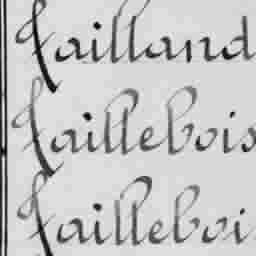 Tailland
Taillebois
Tailleboi